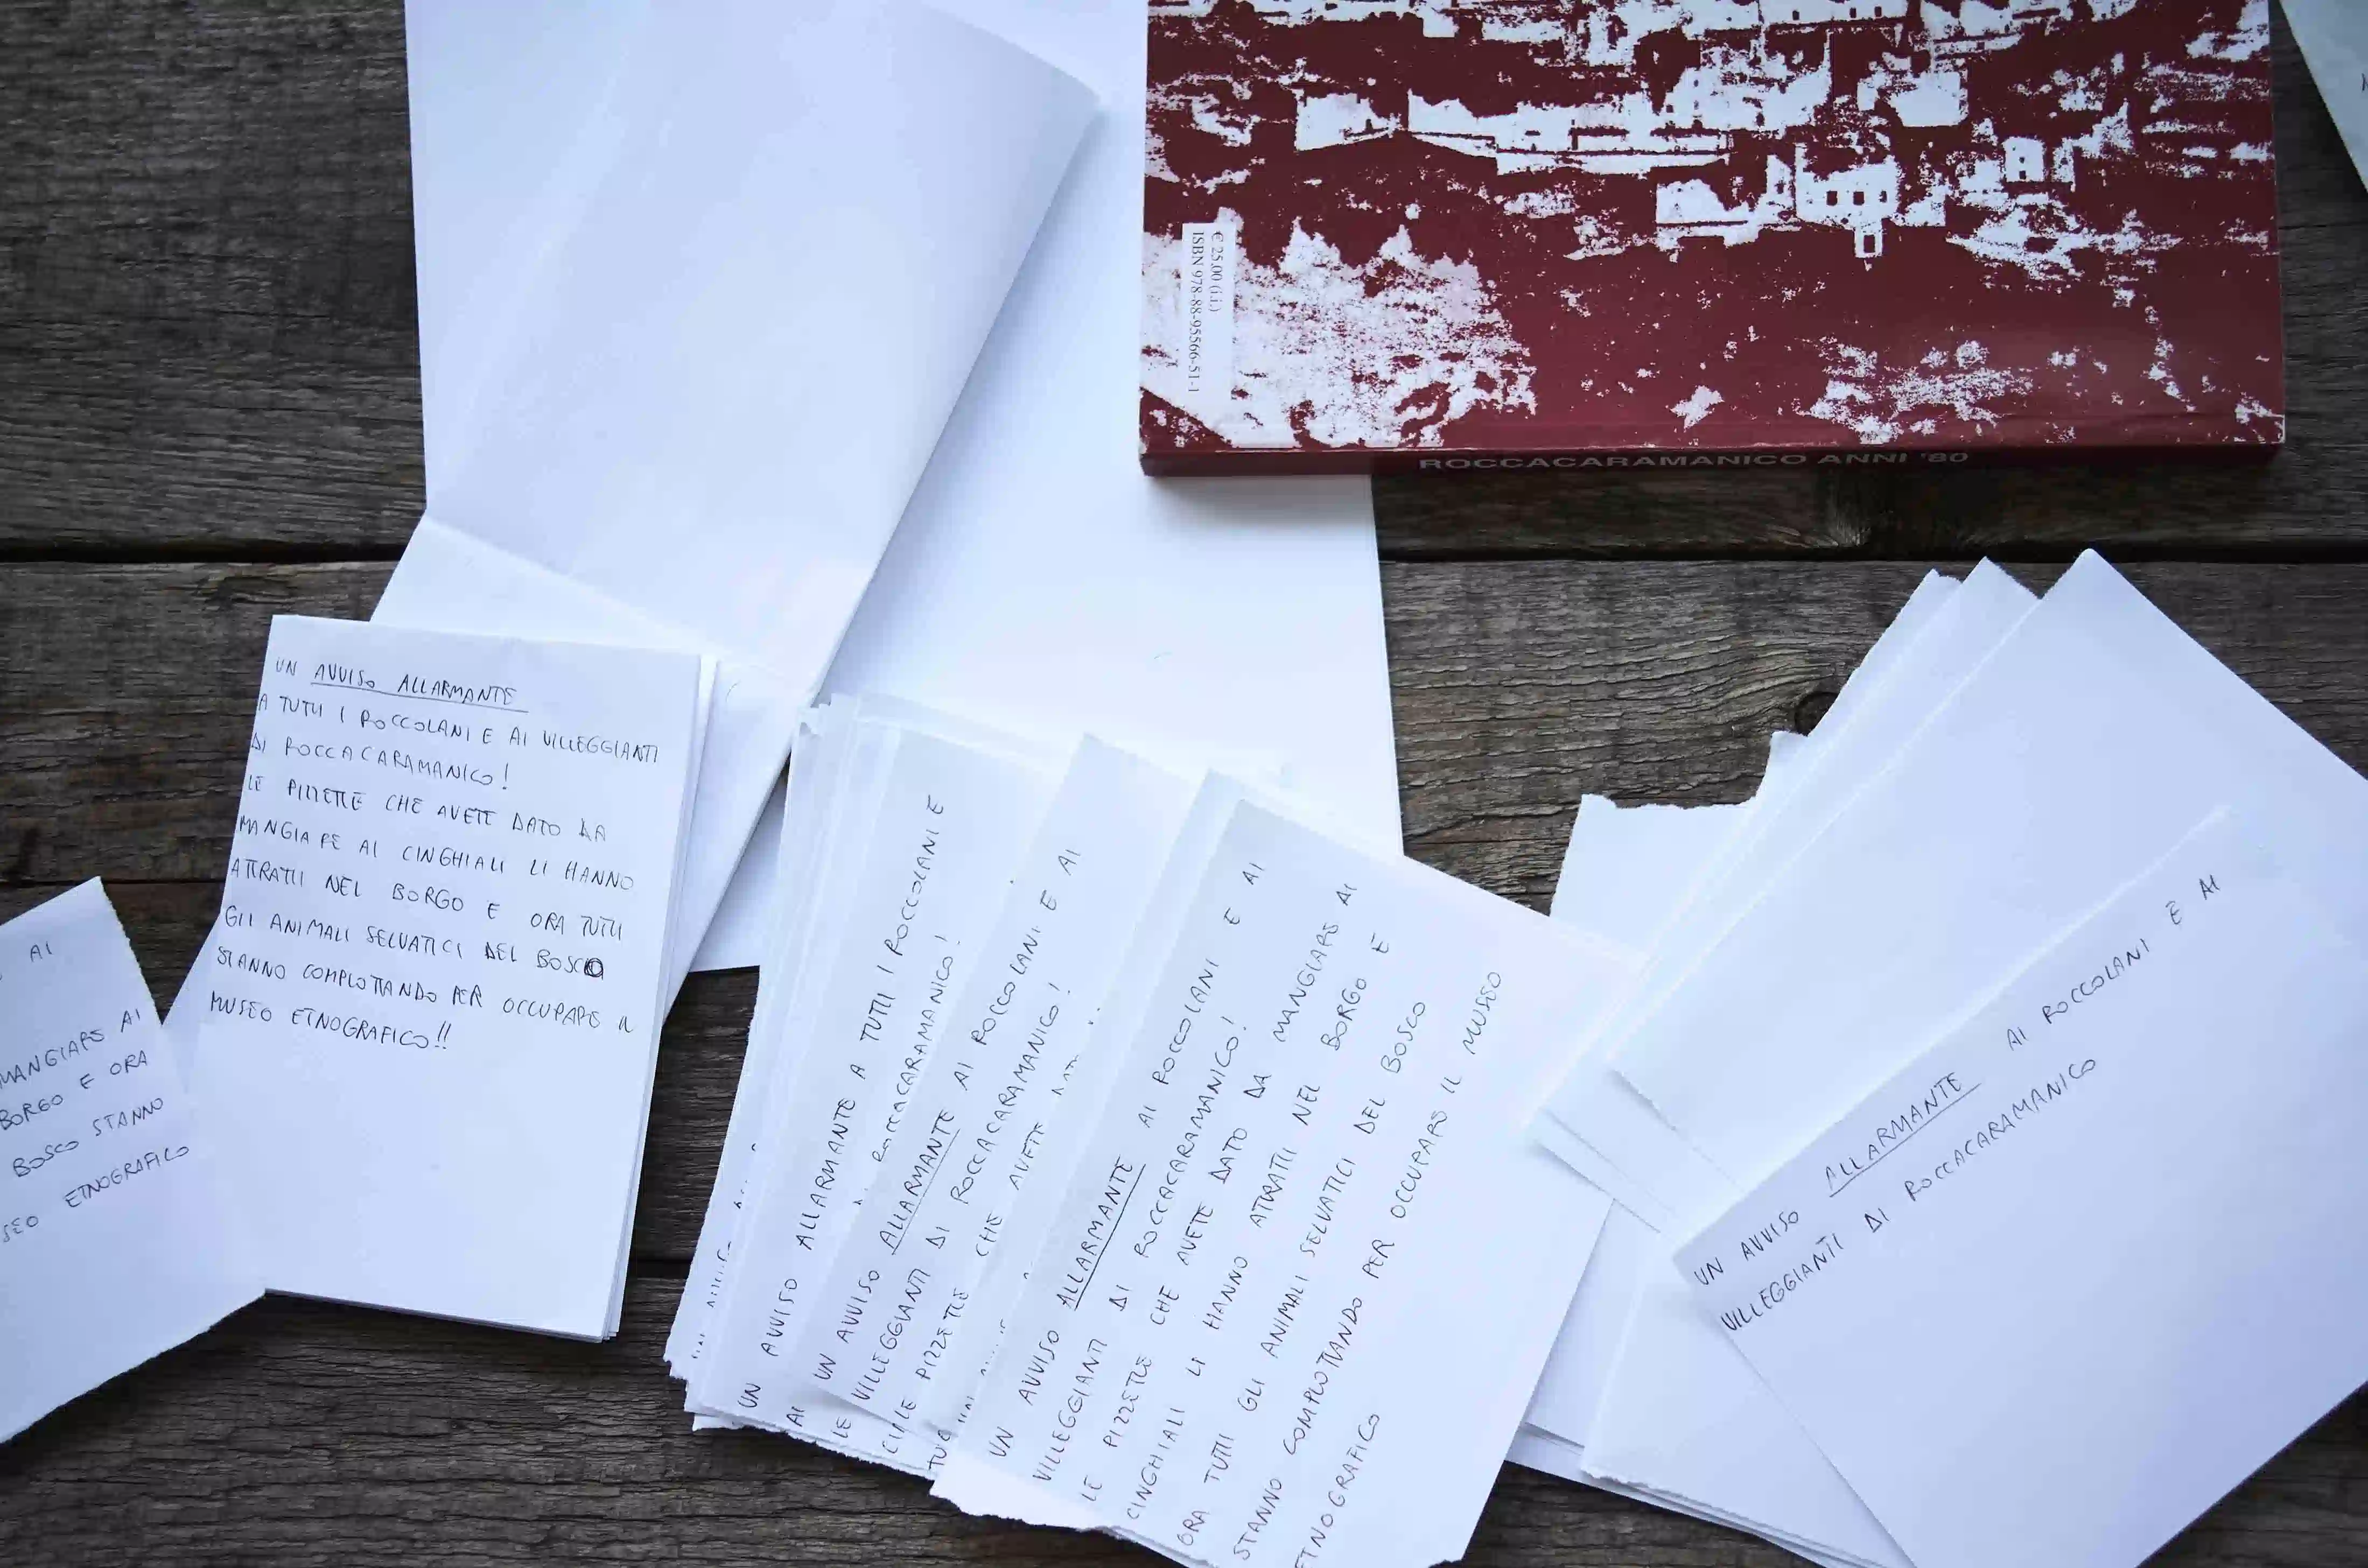 € 25,00 (i.i.)
ISBN 978-88-95566-51-1
ROCCACARAMANICO ANNI '80
UN AVVISO ALLARMANTE
A TUTTI I ROCCOLANI E AI VILLEGGIANTI
DI ROCCACARAMANICO!
LE PIZZETTE CHE AVETE DATO DA
MANGIARE AI CINGHIALI LI HANNO
ATTRATTI NEL BORGO E ORA TUTTI
GLI ANIMALI SELVATICI DEL BOSCO
STANNO COMPLOTTANDO PER OCCUPARE IL
MUSEO ETNOGRAFICO!!
AI
MANGIARE AI
BORGO E ORA
BOSCO STANNO
ETNOGRAFICO
UN AVVISO ALLARMANTE A TUTTI I ROCCOLANI E
AI ROCCACARAMANICO!
UN AVVISO ALLARMANTE AI ROCCOLANI E AI
VILLEGGIANTI DI ROCCACARAMANICO!
LE PIZZETTE CHE AVETE
UN AVVISO ALLARMANTE AI ROCCOLANI E AI
VILLEGGIANTI DI ROCCACARAMANICO!
LE PIZZETTE CHE AVETE DATO DA MANGIARE AI
CINGHIALI LI HANNO ATTRATTI NEL BORGO E
ORA TUTTI GLI ANIMALI SELVATICI DEL BOSCO
STANNO COMPLOTTANDO PER OCCUPARE IL MUSEO
ETNOGRAFICO
UN AVVISO ALLARMANTE AI ROCCOLANI E AI
VILLEGGIANTI DI ROCCACARAMANICO